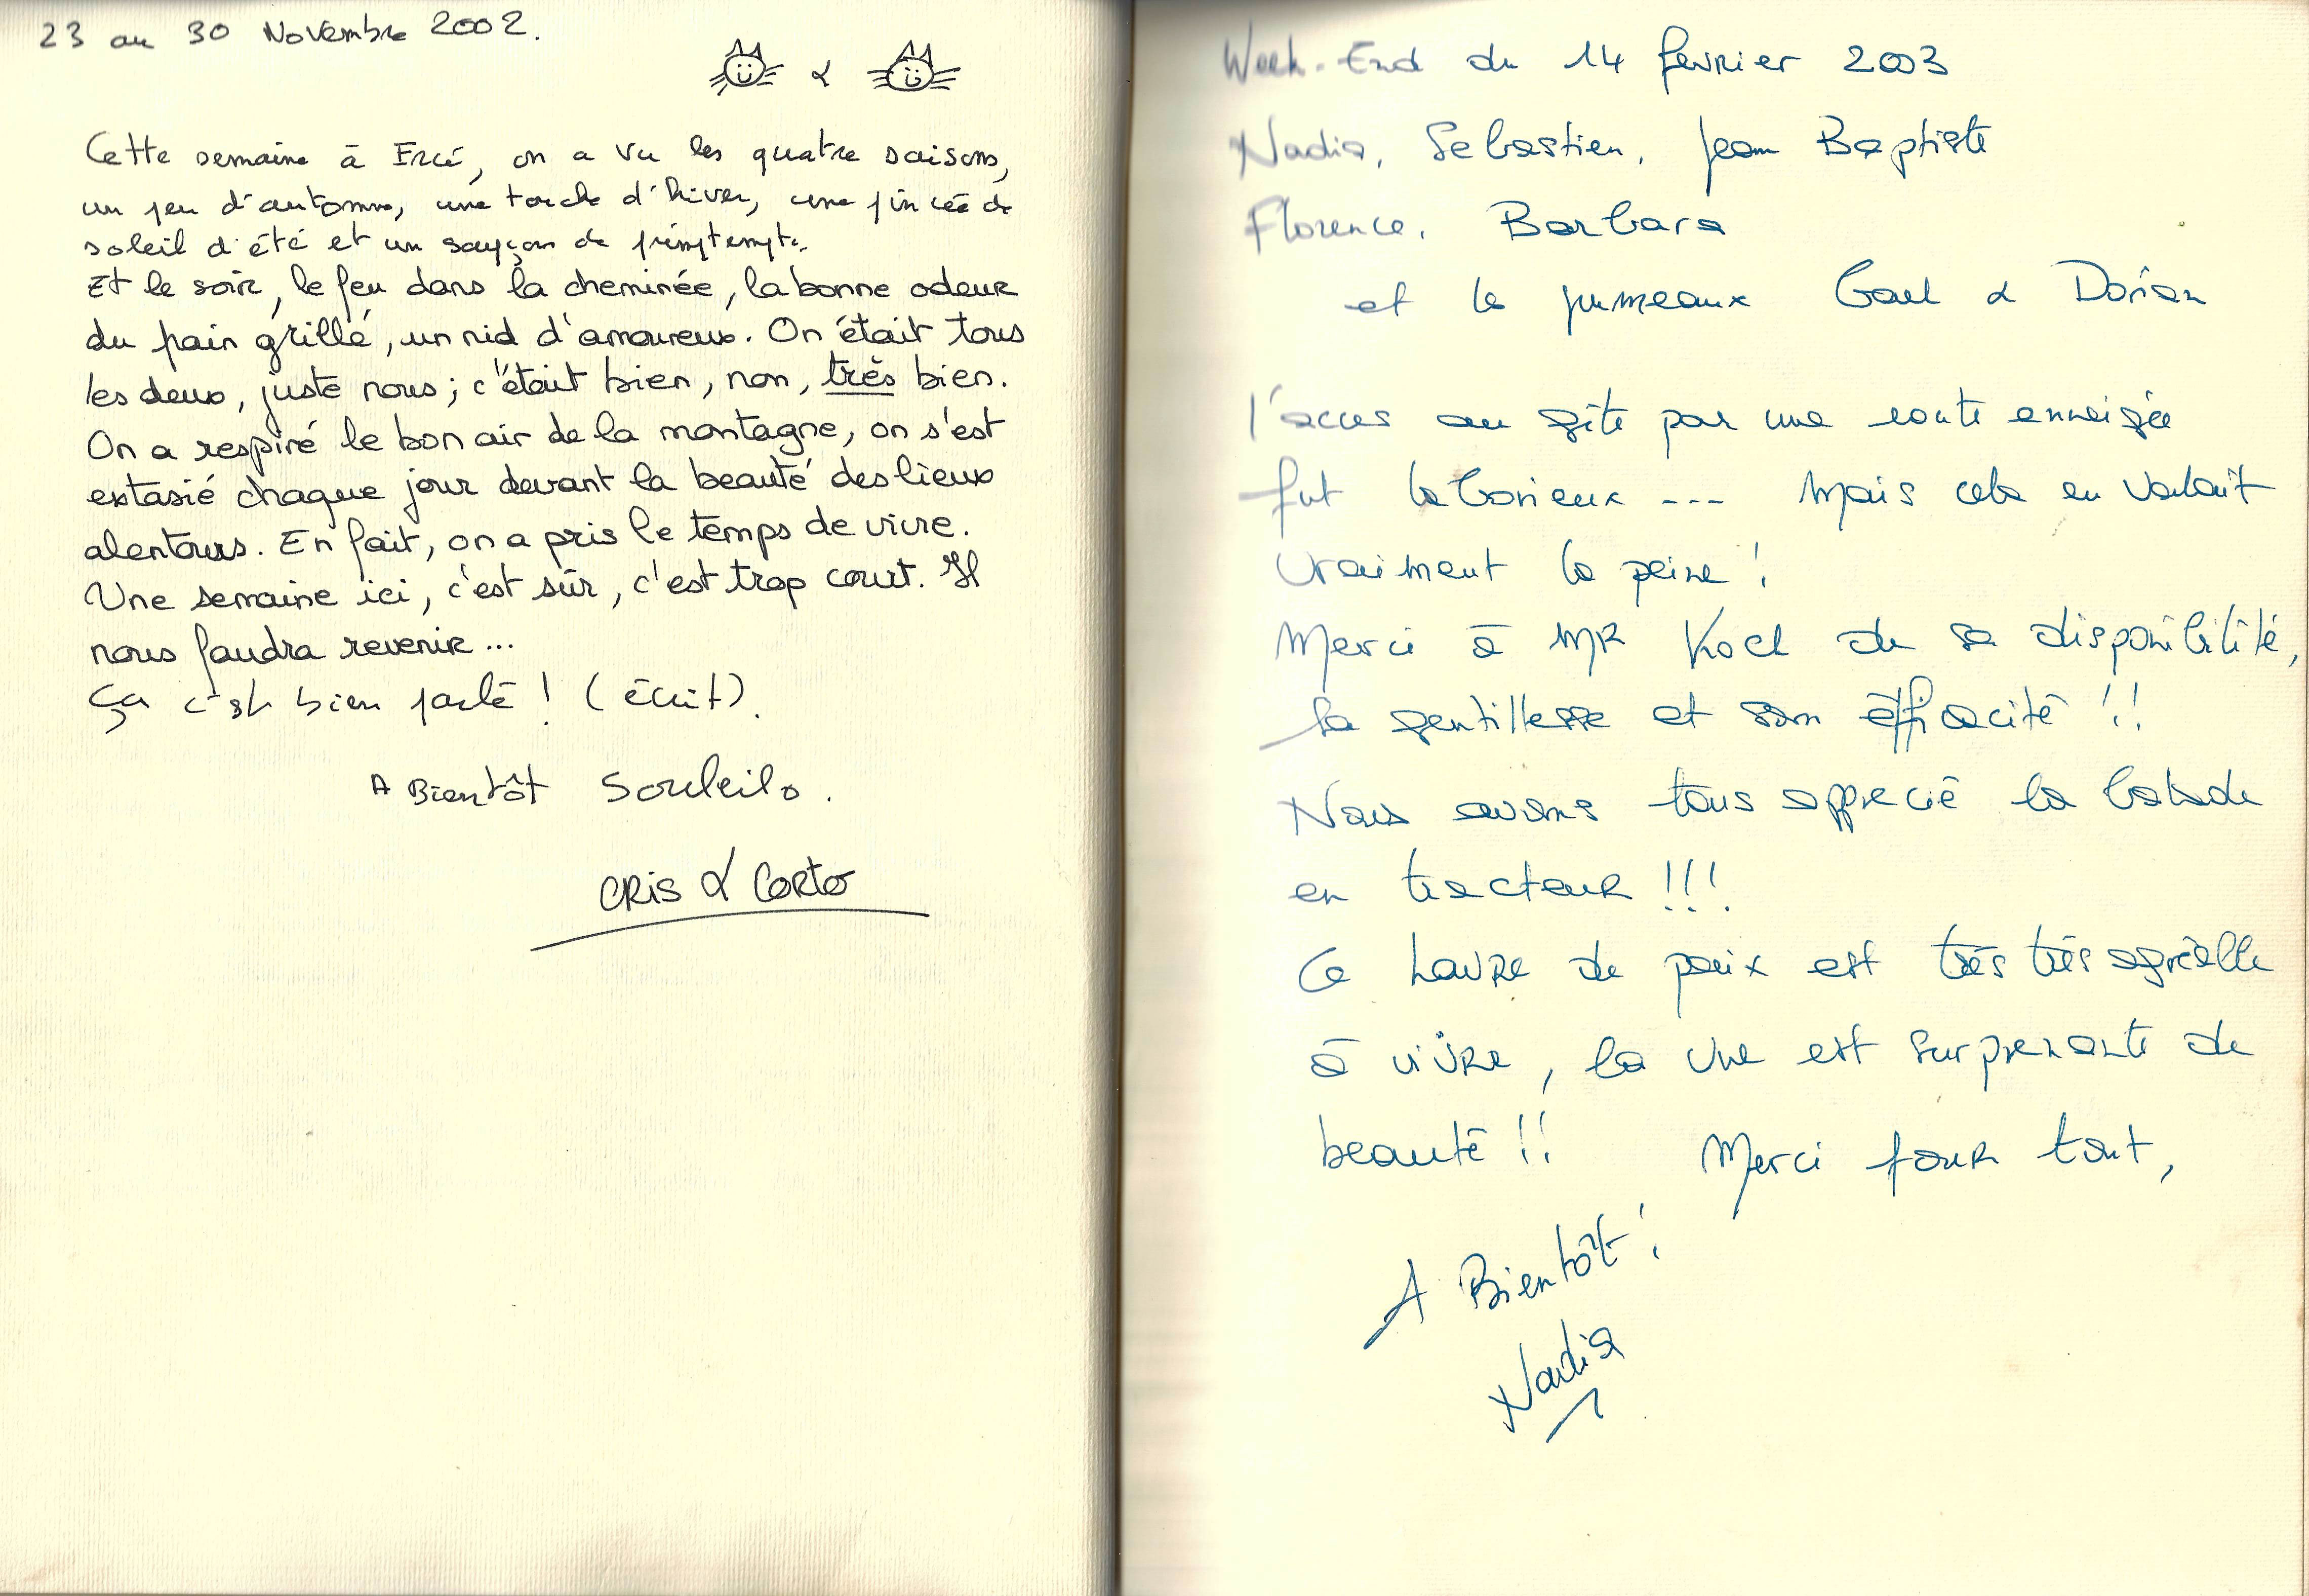 23 au 30 Novembre 2002.
&
Cette semaine à Ercé, on a vu les quatre saisons,
un peu d'automne, une touche d'hiver, une pincée de
soleil d'été et un soupçon de printemps.
Et le soir, le feu dans la cheminée, la bonne odeur
du pain grillé, un nid d'amoureux. On était tous
les deux, juste nous ; c'était bien, non, très bien.
On a respiré le bon air de la montagne, on s'est
extasié chaque jour devant la beauté des lieux
alentours. En fait, on a pris le temps de vivre.
Une semaine ici, c'est sûr, c'est trop court. Il
nous faudra revenir...
Ça c'est bien parlé ! (écrit).
A Bientôt Souleilo.
CRIS & Corto
Week-End du 14 février 2003
Nadia, Sebastien, Jean Baptiste
Florence, Barbara
et les jumeaux Gael & Dorian
l'acces au gîte par une route enneigée
fut laborieux --- Mais cela en valait
vraiment la peine !
Merci à MR Koch de sa disponibilité,
sa gentillesse et son éfficacité !!
Nous avons tous apprecié la balade
en tracteur !!!
Ce havre de paix est très très agréable
à vivre, la vue est surprenante de
beauté !! Merci pour tout,
A Bientôt !
Nadia